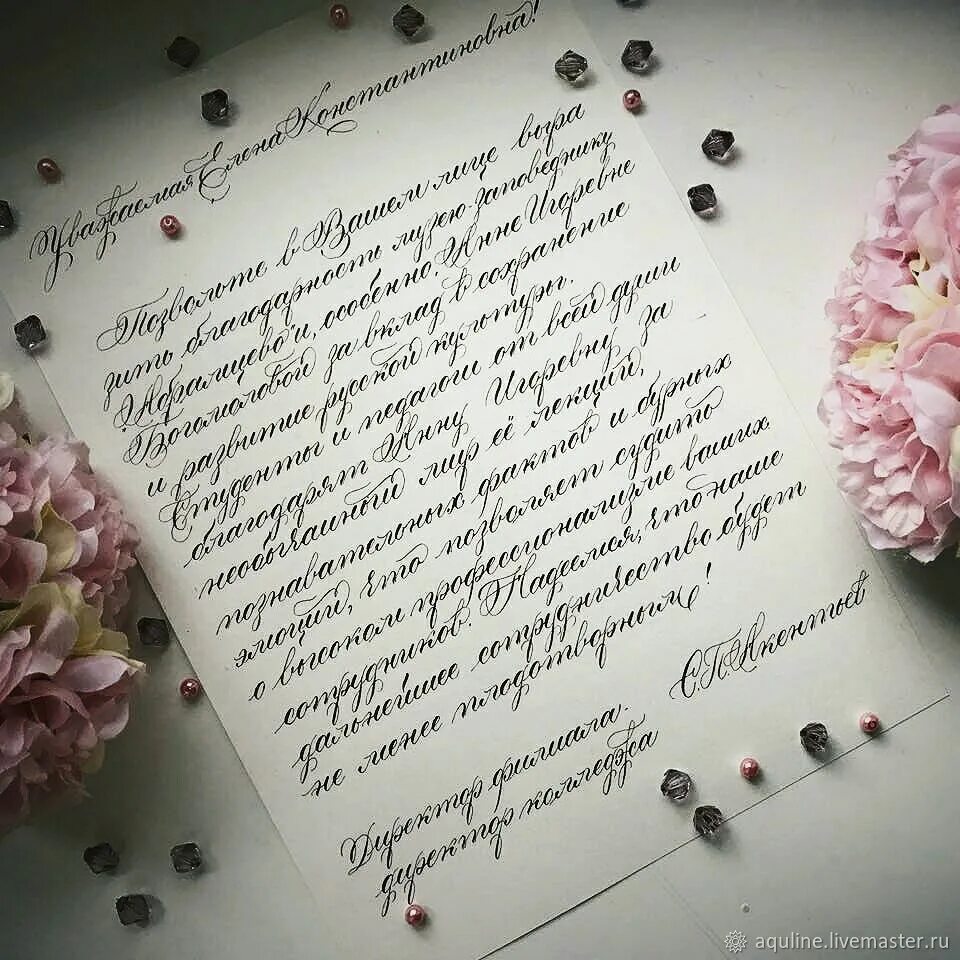 Уважаемая Елена Константиновна!
Позвольте в Вашем лице выра
зить благодарность музею-заповеднику
"Абрамцево" и, особенно, Анне Игоревне
Богомоловой за вклад в сохранение
и развитие русской культуры.
Студенты и педагоги от всей души
благодарят Анну Игоревну за
необычайный мир её лекций,
познавательных фактов и бурных
эмоций, что позволяет судить
о высоком профессионализме ваших
сотрудников. Надеемся, что наше
дальнейшее сотрудничество будет
не менее плодотворным!
Директор филиала.
директор колледжа
С.П.Акентьев
aquline.livemaster.ru